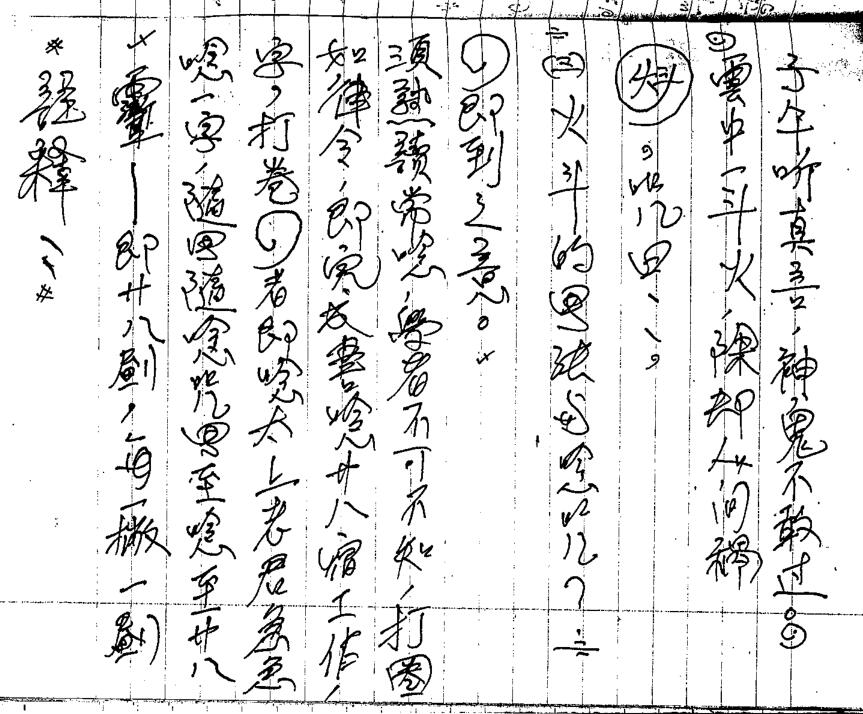 子午吩真言，神鬼不敢过。
雲中一斗火，除却人间祸
，咒凡用、、。
(三)火斗的用法与唸咒？
即到之意。
須熟讀常唸，學者不可不知，打圈
如律令，即完成書唸廿八宿工作，
字，打卷 者即唸太上老君急急
唸一字，隨畫隨唸咒畫至唸至廿八
即廿八劃，每一撇一劃
註释